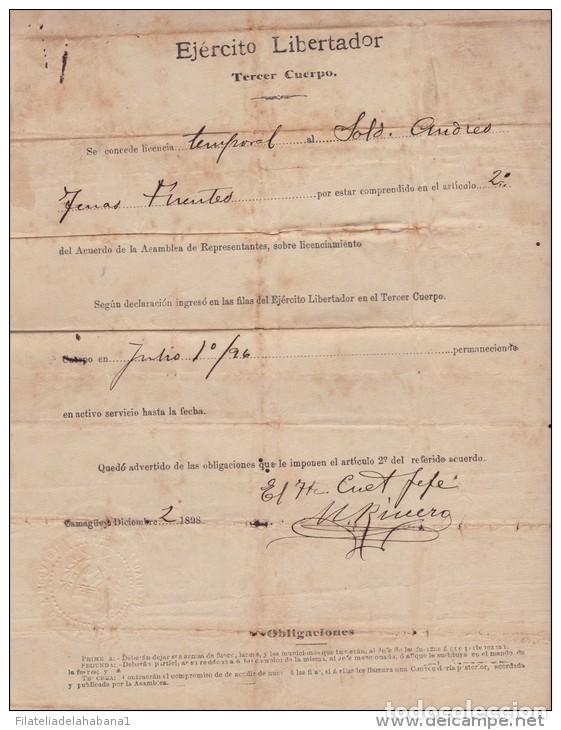 Ejército Libertador
Tercer Cuerpo.
Se concede licencia temporal al Sold. Andres
Fuentes por estar comprendido en el artículo 2º
del Acuerdo de la Asamblea de Representantes, sobre licenciamiento
Según declaración ingresó en las filas del Ejército Libertador en el Tercer Cuerpo.
Cuerpo en Julio 1º/96 permaneciendo
en activo servicio hasta la fecha.
Quedó advertido de las obligaciones que le imponen el artículo 2º del referido acuerdo.
El Jefe
Camagüey Diciembre 2 1898
M. Rivero
Obligaciones
PRIMERA:-Deberán dejar sus armas de fuego, y las municiones que tuvieran, al Jefe de las fuerzas á que pertenezcan.
SEGUNDA:-Deberán participar su residencia de la misma, al Jefe mencionado, ó al que le sustituya en el mando de
la fuerza; y
TERCERA: Contraerán el compromiso de acudir de nuevo á las filas, si á ellas les llamara una Convocatoria posterior, acordada
y publicada por la Asamblea.
Filateliadelahabana1
www.delcampe.net
todocoleccion.net